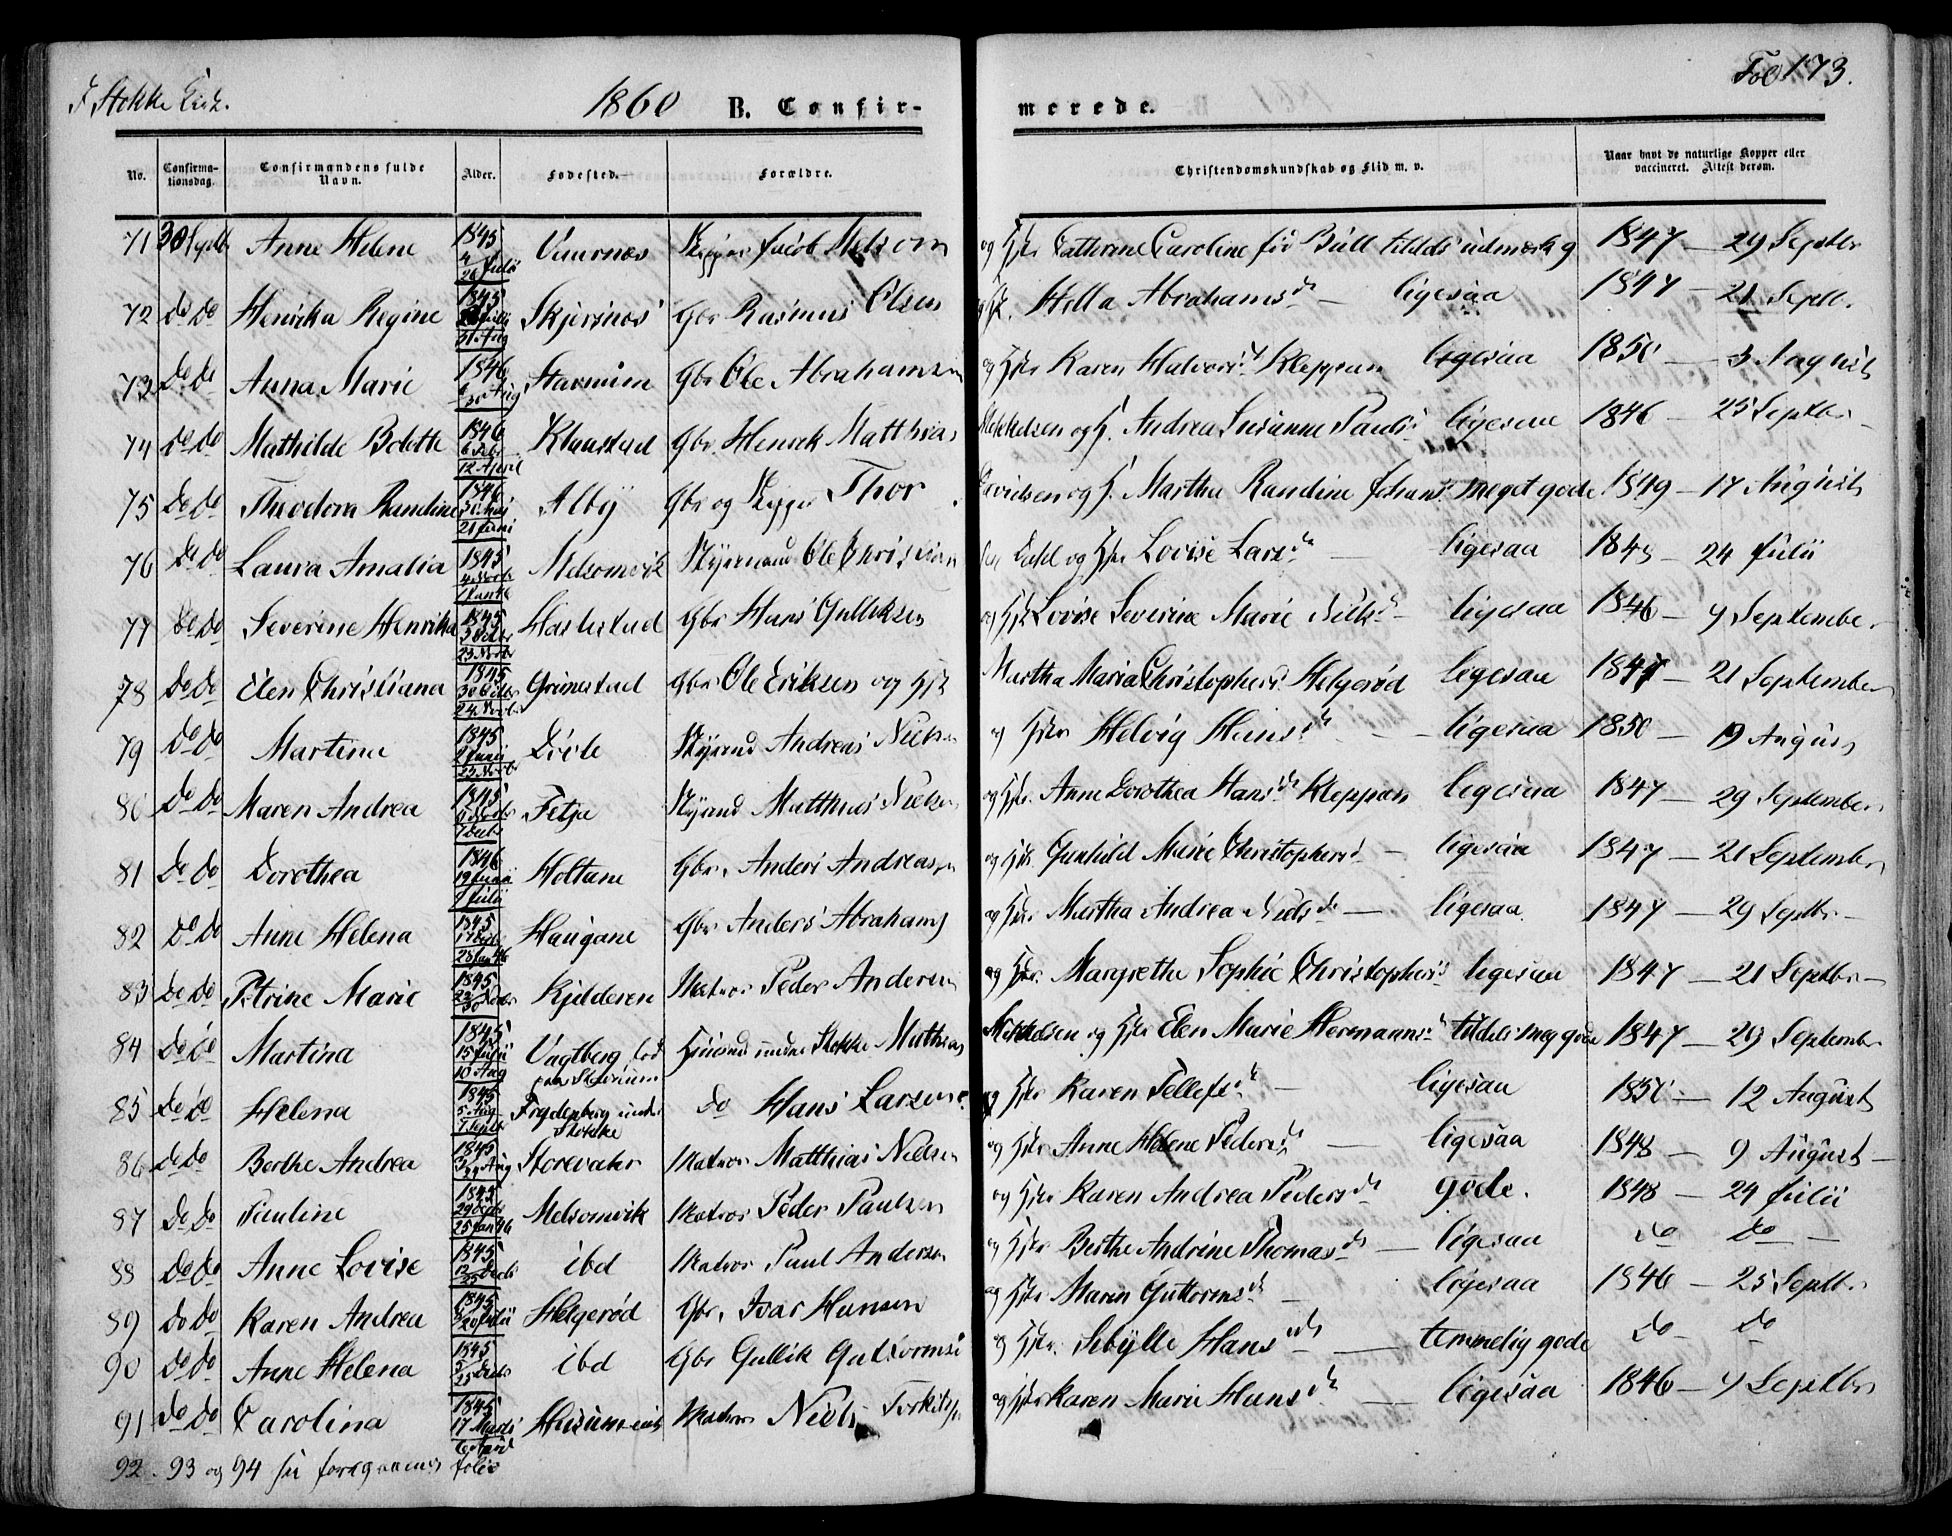 I Stokke Kirk. 1860 B. Confirmerede. Fol 173.
No. Confirmationsdag. Confirmandens fulde Navn. Alder. Fødested. Forældre. Christendomskundskab og Flid m. v. Naar havt de naturlige Kopper eller vaccineret. Attest derom.
71 30 Septb Anne Helene 1845 4 26 Julii Skipper Jacob Melsom og Hstr Cathrine Caroline fød Bull tildels udmærk g 1847 — 29 Septbr
72 Do Do Henrika Regine 1845 31 Aug Gbr Rasmus Olsen Hst. Stella Abrahamsdr — ligesaa 1847 — 21 Septb.
73 Do Do Anna Marie 1846 30 Aug Gbr Ole Abrahamsen og Hstr Karen Halvorsdr Kleppan ligesaa 1850 — 3 August
74 Do Do Mathilde Bolette 1846 6 Febr 12 April Klaastad Gbr Henrik Matthias Mikkelsen og H. Andrea Susanne Paulsdr ligesaa 1846 — 25 Septbr
75 Do Do Theodora Randine 1846 21 Juni Alby Gbr og Skipper Thor Davidsen og H. Martha Randine Johansdr meget gode 1849 — 17 August
76 Do Do Laura Amalia 1845 4 Novbr Melsomvik Styrmand Ole Christian Dahl og Hstr Lovise Larsdr — ligesaa 1848 — 24 Julii
77 Do Do Severine Henrika 1845 5 Octbr 23 Novbr Gbr Hans Gulliksen og Hstr Lovise Severine Marie Nilsdr — ligesaa 1846 — 9 September
78 Do Do Elen Christiana 1845 30 Octbr 24 Novbr Grimestad Gbr Ole Eriksen og Hstr Martha Maria Christophersdr Helgerød ligesaa 1847 — 21 September
79 Do Do Martine 1845 23 Novbr Styrmd Andreas Nielsen og Hstr Helvig Hansdr — ligesaa 1850 — 19 August
80 Do Do Maren Andrea 1845 7 Decbr Fetja Styrmd Matthias Nielsen og Hstr. Anne Dorothea Hansdr Kleppan ligesaa 1847 — 29 September
81 Do Do Dorothea 1846 19 Junii Julii Holtane Gbr. Anders Andreassen og Hstr. Gunhild Marie Christophersd — ligesaa 1847 — 21 September
82 Do Do Anne Helena 1845 28 Jan 46 Haugane Gbr Anders Abrahams og Hstr Martha Andrea Nielsdr — ligesaa 1847 — 29 Septbr —
83 Do Do Petrine Marie 1845 30 Matros Peder Andersen og Hstr. Margrethe Sophie Christophersdr ligesaa 1847 — 21 Septbr —
84 Do Do Martina 1845 15 Julii 10 Aug Husmd under Stokke Mathias Mikkelsen og Hstr Elen Marie Hermannsdr tildels meg gode 1847 — 29 September
85 Do Do Helena 1845 5 Aug 7 Septbr Frydenberg under Stokke do Hans Larsen og Hstr Karen Tellefsdr — ligesaa 1850 — 12 August
86 Do Do Berthe Andrea 1845 Aug Storevahr Matros Matthias Nielsen og Hstr Anne Helene Pedersdr — ligesaa 1848 — 9 August —
87 Do Do Pauline 1845 25 Jan 46 Melsomvik Matros Peder Paulsen og Hstr Karen Andrea Pedersdr gode. 1848 — 24 Julii
88 Do Do Anne Lovise 1845 ibd Matros Paul Andersen og Hstr Berthe Andrine Thomasdr — ligesaa do — do —
89 Do Do Karen Andrea 1845 20 Julii Helgerød Gbr. Ivar Hansen og Hstr Maren Guttormsdr — ligesaa 1846 — 25 Septbr
90 Do Do Anne Helena 1845 25 Decbr ibd Gbr Gullik Guttormsen og Hstr. Sibylle Hansdr — temmelig gode do — do
91 Do Do Carolina 1845 17 Marts Matros Niels og Hstr Karen Marie Hansdr — ligesaa 1846 — 9 Septbr
92. 93 og 94 paa foregaaende folio